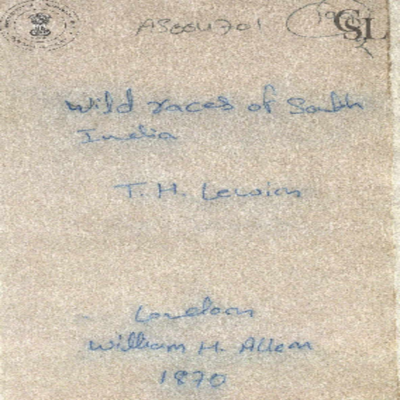 A3004701
CSL
Wild races of South
India
T. H. Lewin
London
William H. Allen
1870